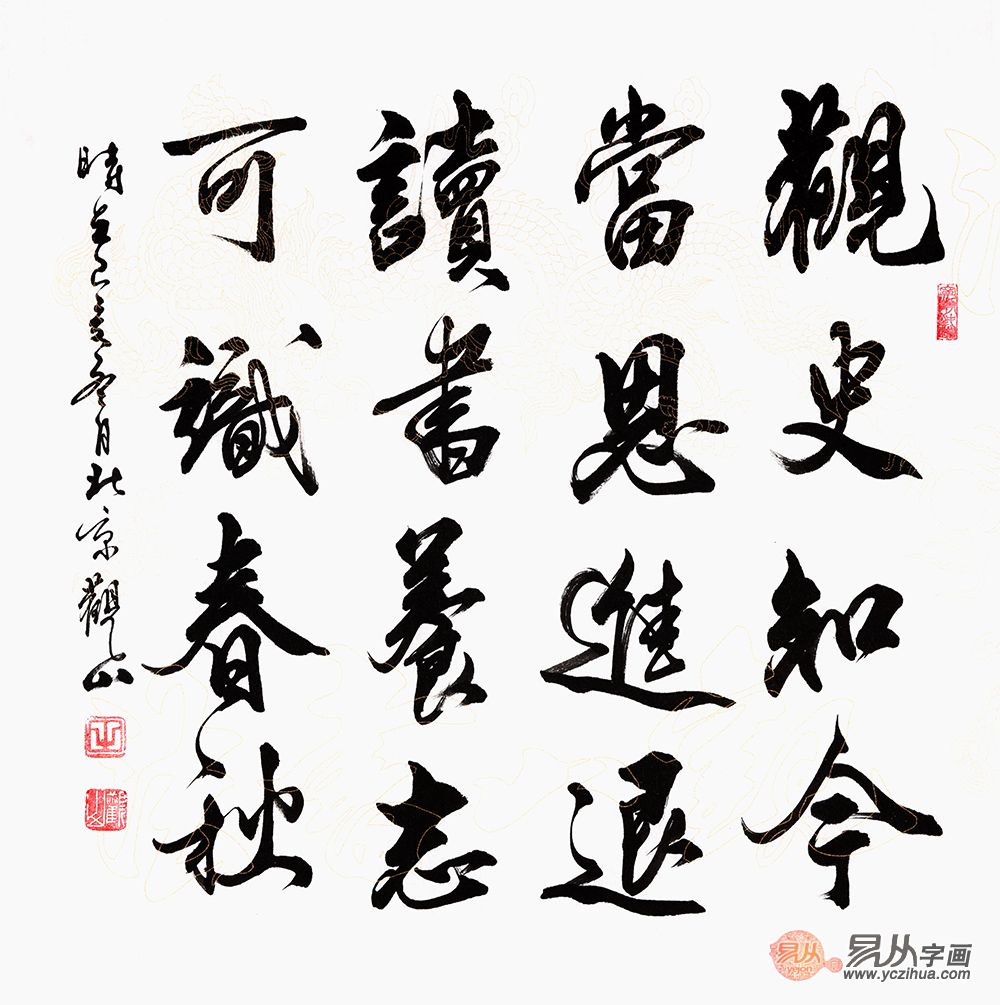 觀史知今
當思進退
讀書養志
可識春秋
時在己亥冬月北京觀山
易从
yejon
易从字画
www.yczihua.com